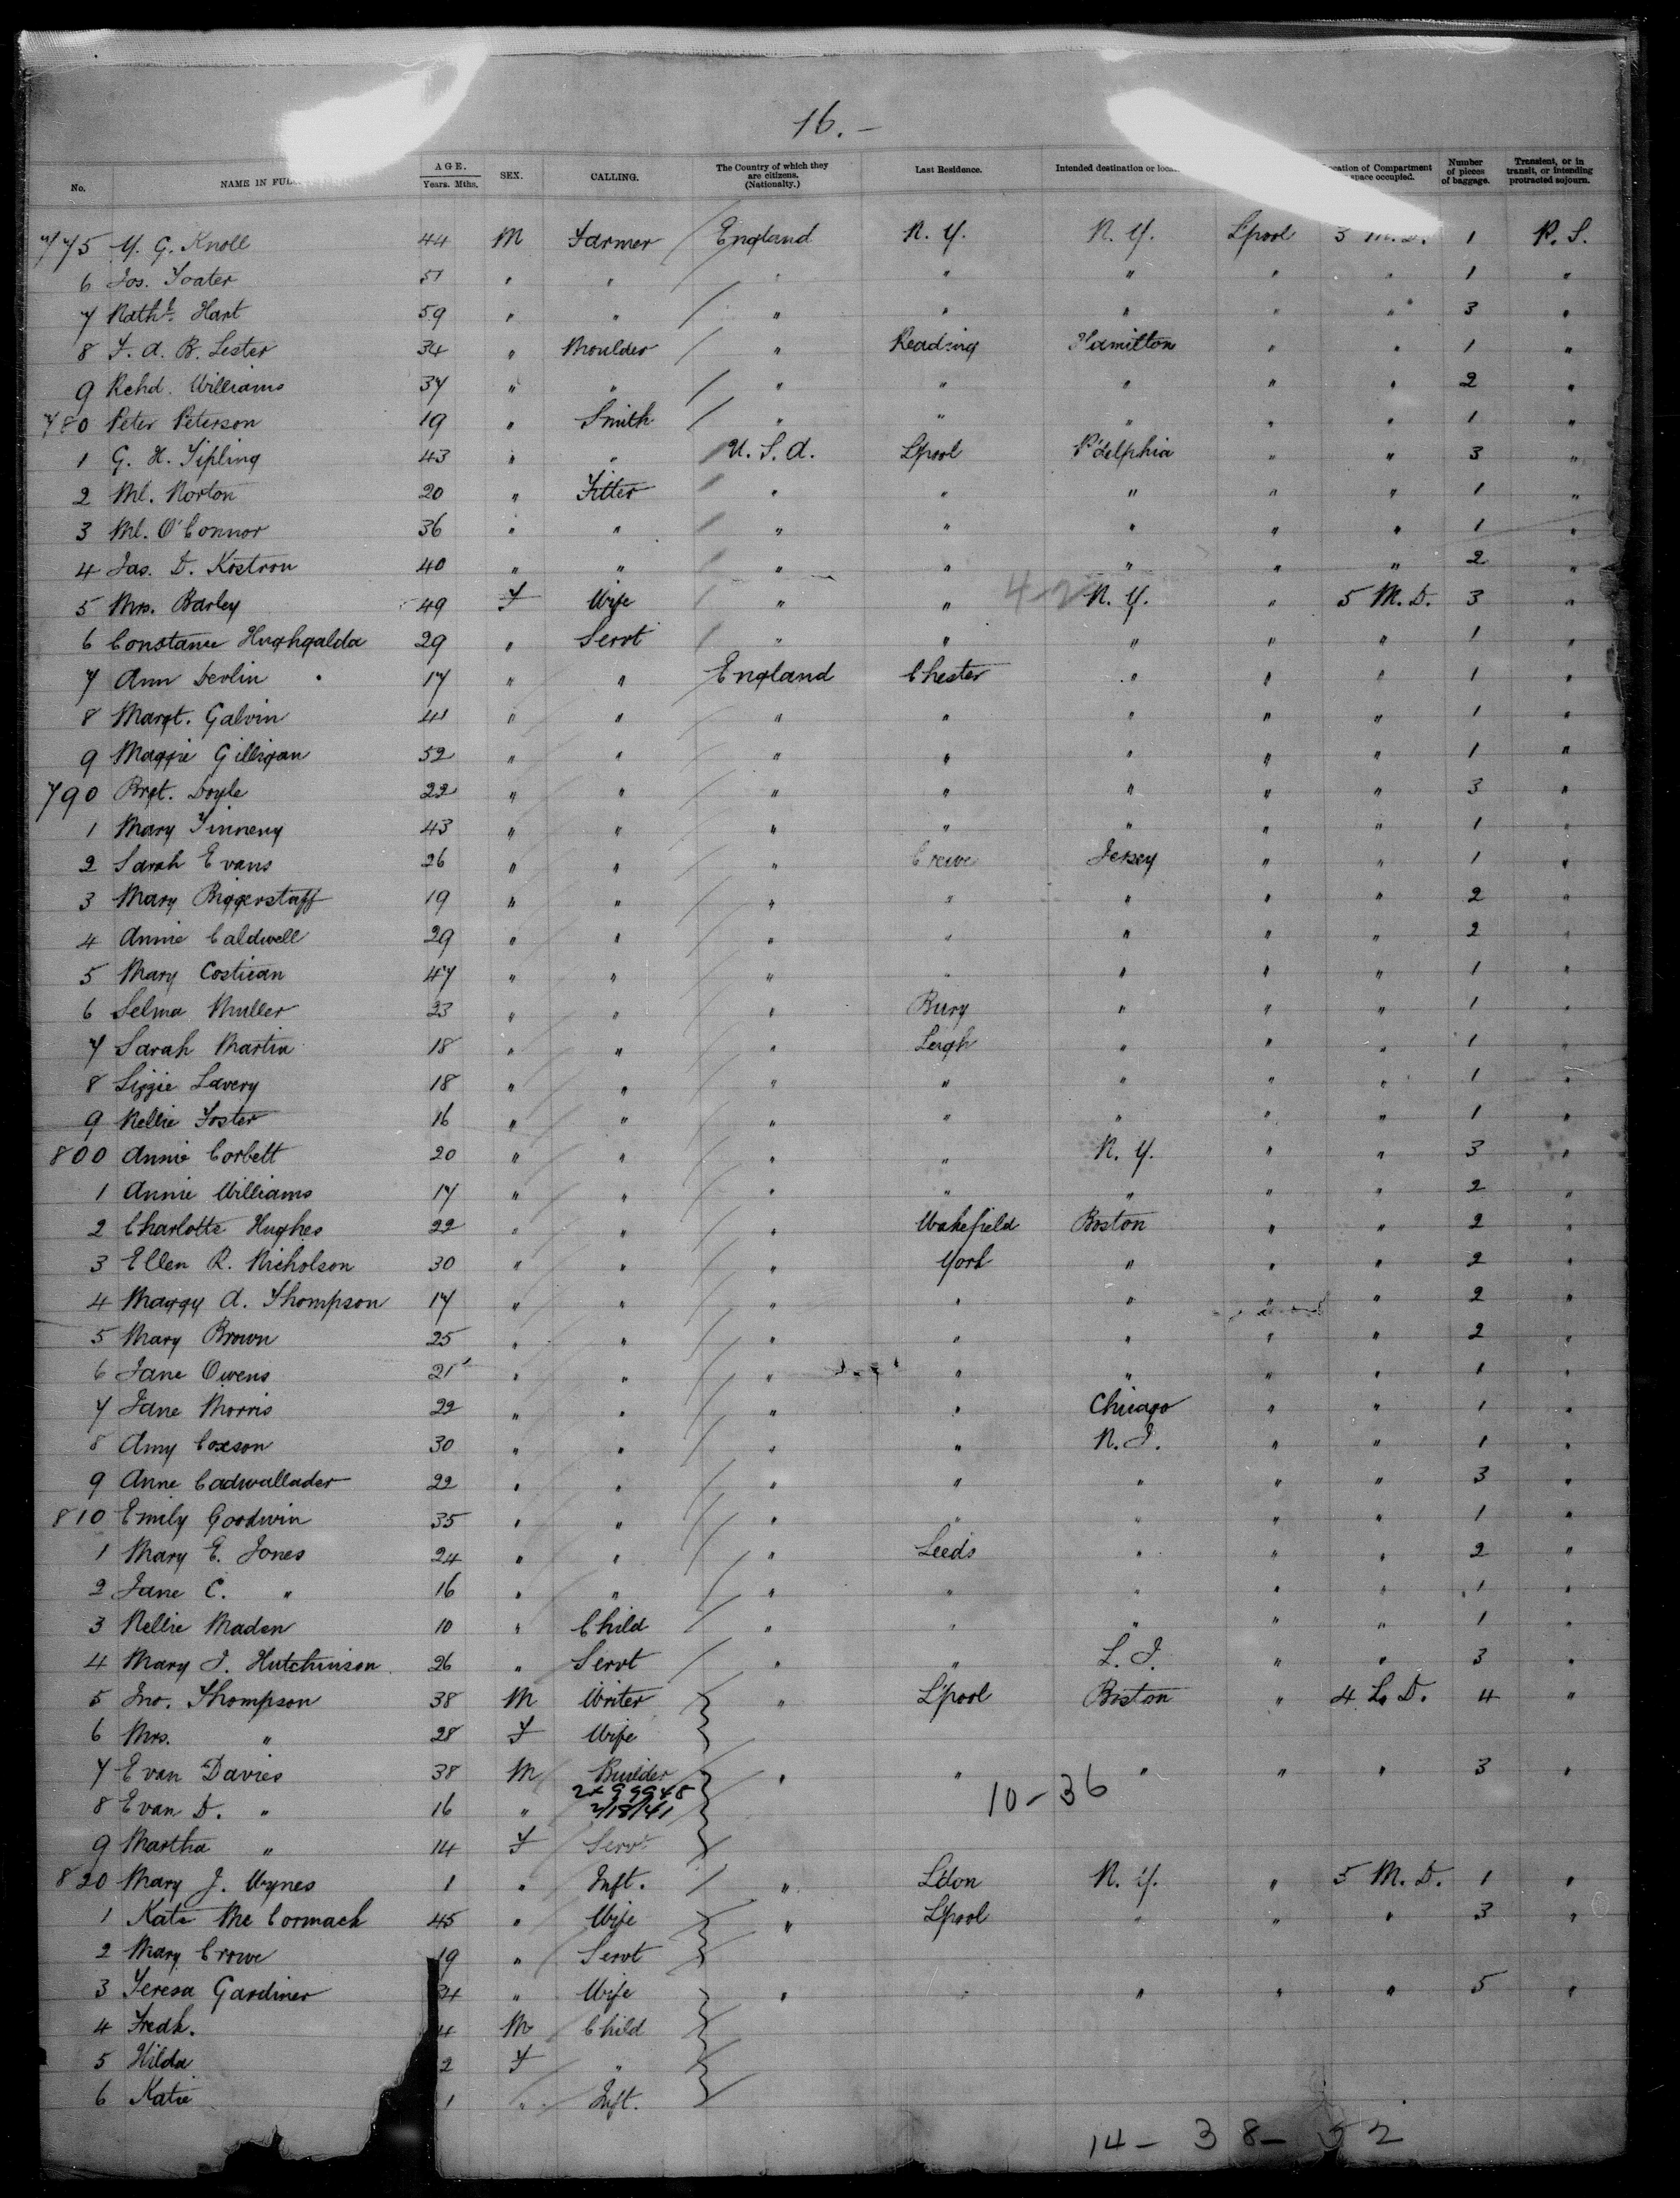 16. –
No. NAME IN FULL AGE. Years. Mths. SEX. CALLING. The Country of which they are citizens. (Nationality.) Last Residence. Intended destination or Compartment space occupied. Number of pieces of baggage. Transient, or in transit, or intending protracted sojourn.
775 Y. G. Knoll 44 M Farmer England N. Y. N. Y. L'pool 3 M. D. 1 P. S.
6 Jos. Toater 51 " " " " " " " 1 "
7 Nathl. Hart 59 " " " " " " " 3 "
8 F. A. B. Lester 34 " Moulder " Reading Hamilton " " 1 "
9 Rchd. Williams 37 " " " " " " " 2 "
780 Peter Peterson 19 " Smith " " " " " 1 "
1 G. H. Tipling 43 " " U. S. A. L'pool P'delphia " " 3 "
2 Ml. Norton 20 " Fitter " " " " " 1 "
3 Ml. O'Connor 36 " " " " " " " 1 "
4 Jas. D. Kostron 40 " " " " " " " 2 "
5 Mrs. Barley 49 F Wife " " 4-2 N. Y. " 5 M. D. 3 "
6 Constance Hughgalda 29 " Servt " " " " " 1 "
7 Ann Devlin 17 " " England Chester " " " 1 "
8 Margt. Galvin 41 " " " " " " " 1 "
9 Maggie Gilligan 52 " " " " " " " 1 "
790 Brgt. Doyle 22 " " " " " " " 3 "
1 Mary Finneny 43 " " " " " " " 1 "
2 Sarah Evans 26 " " " Crewe Jersey " " 1 "
3 Mary Biggerstaff 19 " " " " " " " 2 "
4 Annie Caldwell 29 " " " " " " " 2 "
5 Mary Costican 47 " " " " " " " 1 "
6 Selma Muller 23 " " " Bury " " " 1 "
7 Sarah Martin 18 " " " Leigh " " " 1 "
8 Lizzie Lavery 18 " " " " " " " 1 "
9 Nellie Foster 16 " " " " " " " 1 "
800 Annie Corbett 20 " " " " N. Y. " " 3 "
1 Annie Williams 17 " " " " " " " 2 "
2 Charlotte Hughes 22 " " " Wakefield Boston " " 2 "
3 Ellen R. Nicholson 30 " " " York " " " 2 "
4 Maggy A. Thompson 17 " " " " " " " 2 "
5 Mary Brown 25 " " " " " " " 2 "
6 Jane Owens 21 " " " " " " " 1 "
7 Jane Morris 22 " " " " Chicago " " 1 "
8 Amy Coxson 30 " " " " N. J. " " 1 "
9 Anne Cadwallader 22 " " " " " " " 3 "
810 Emily Goodwin 35 " " " " " " " 1 "
1 Mary E. Jones 24 " " " Leeds " " " 2 "
2 Jane C. " 16 " " " " " " " 1 "
3 Nellie Maden 10 " Child " " " " " 1 "
4 Mary J. Hutchinson 26 " Servt " " L. I. " " 3 "
5 Jno. Thompson 38 M Writer " L'pool Boston " 4 L. D. 4 "
6 Mrs. " 28 F Wife
7 Evan Davies 38 M Builder " " " " " 3 "
2x 99948
10–36
8 Evan D. " 16 " 2/18/41
9 Martha " 14 F Servt
820 Mary J. Wynes 1 " Inft. " L'don N. Y. " 5 M. D. 1 "
1 Kate McCormack 45 " Wife " L'pool " " " 3 "
2 Mary Crowe 19 " Servt
3 Teresa Gardiner 34 " Wife " " " " " 5 "
4 Fredk. 4 M Child
5 Hilda 2 F "
6 Katie 1 " Inft.
14– 38– 52